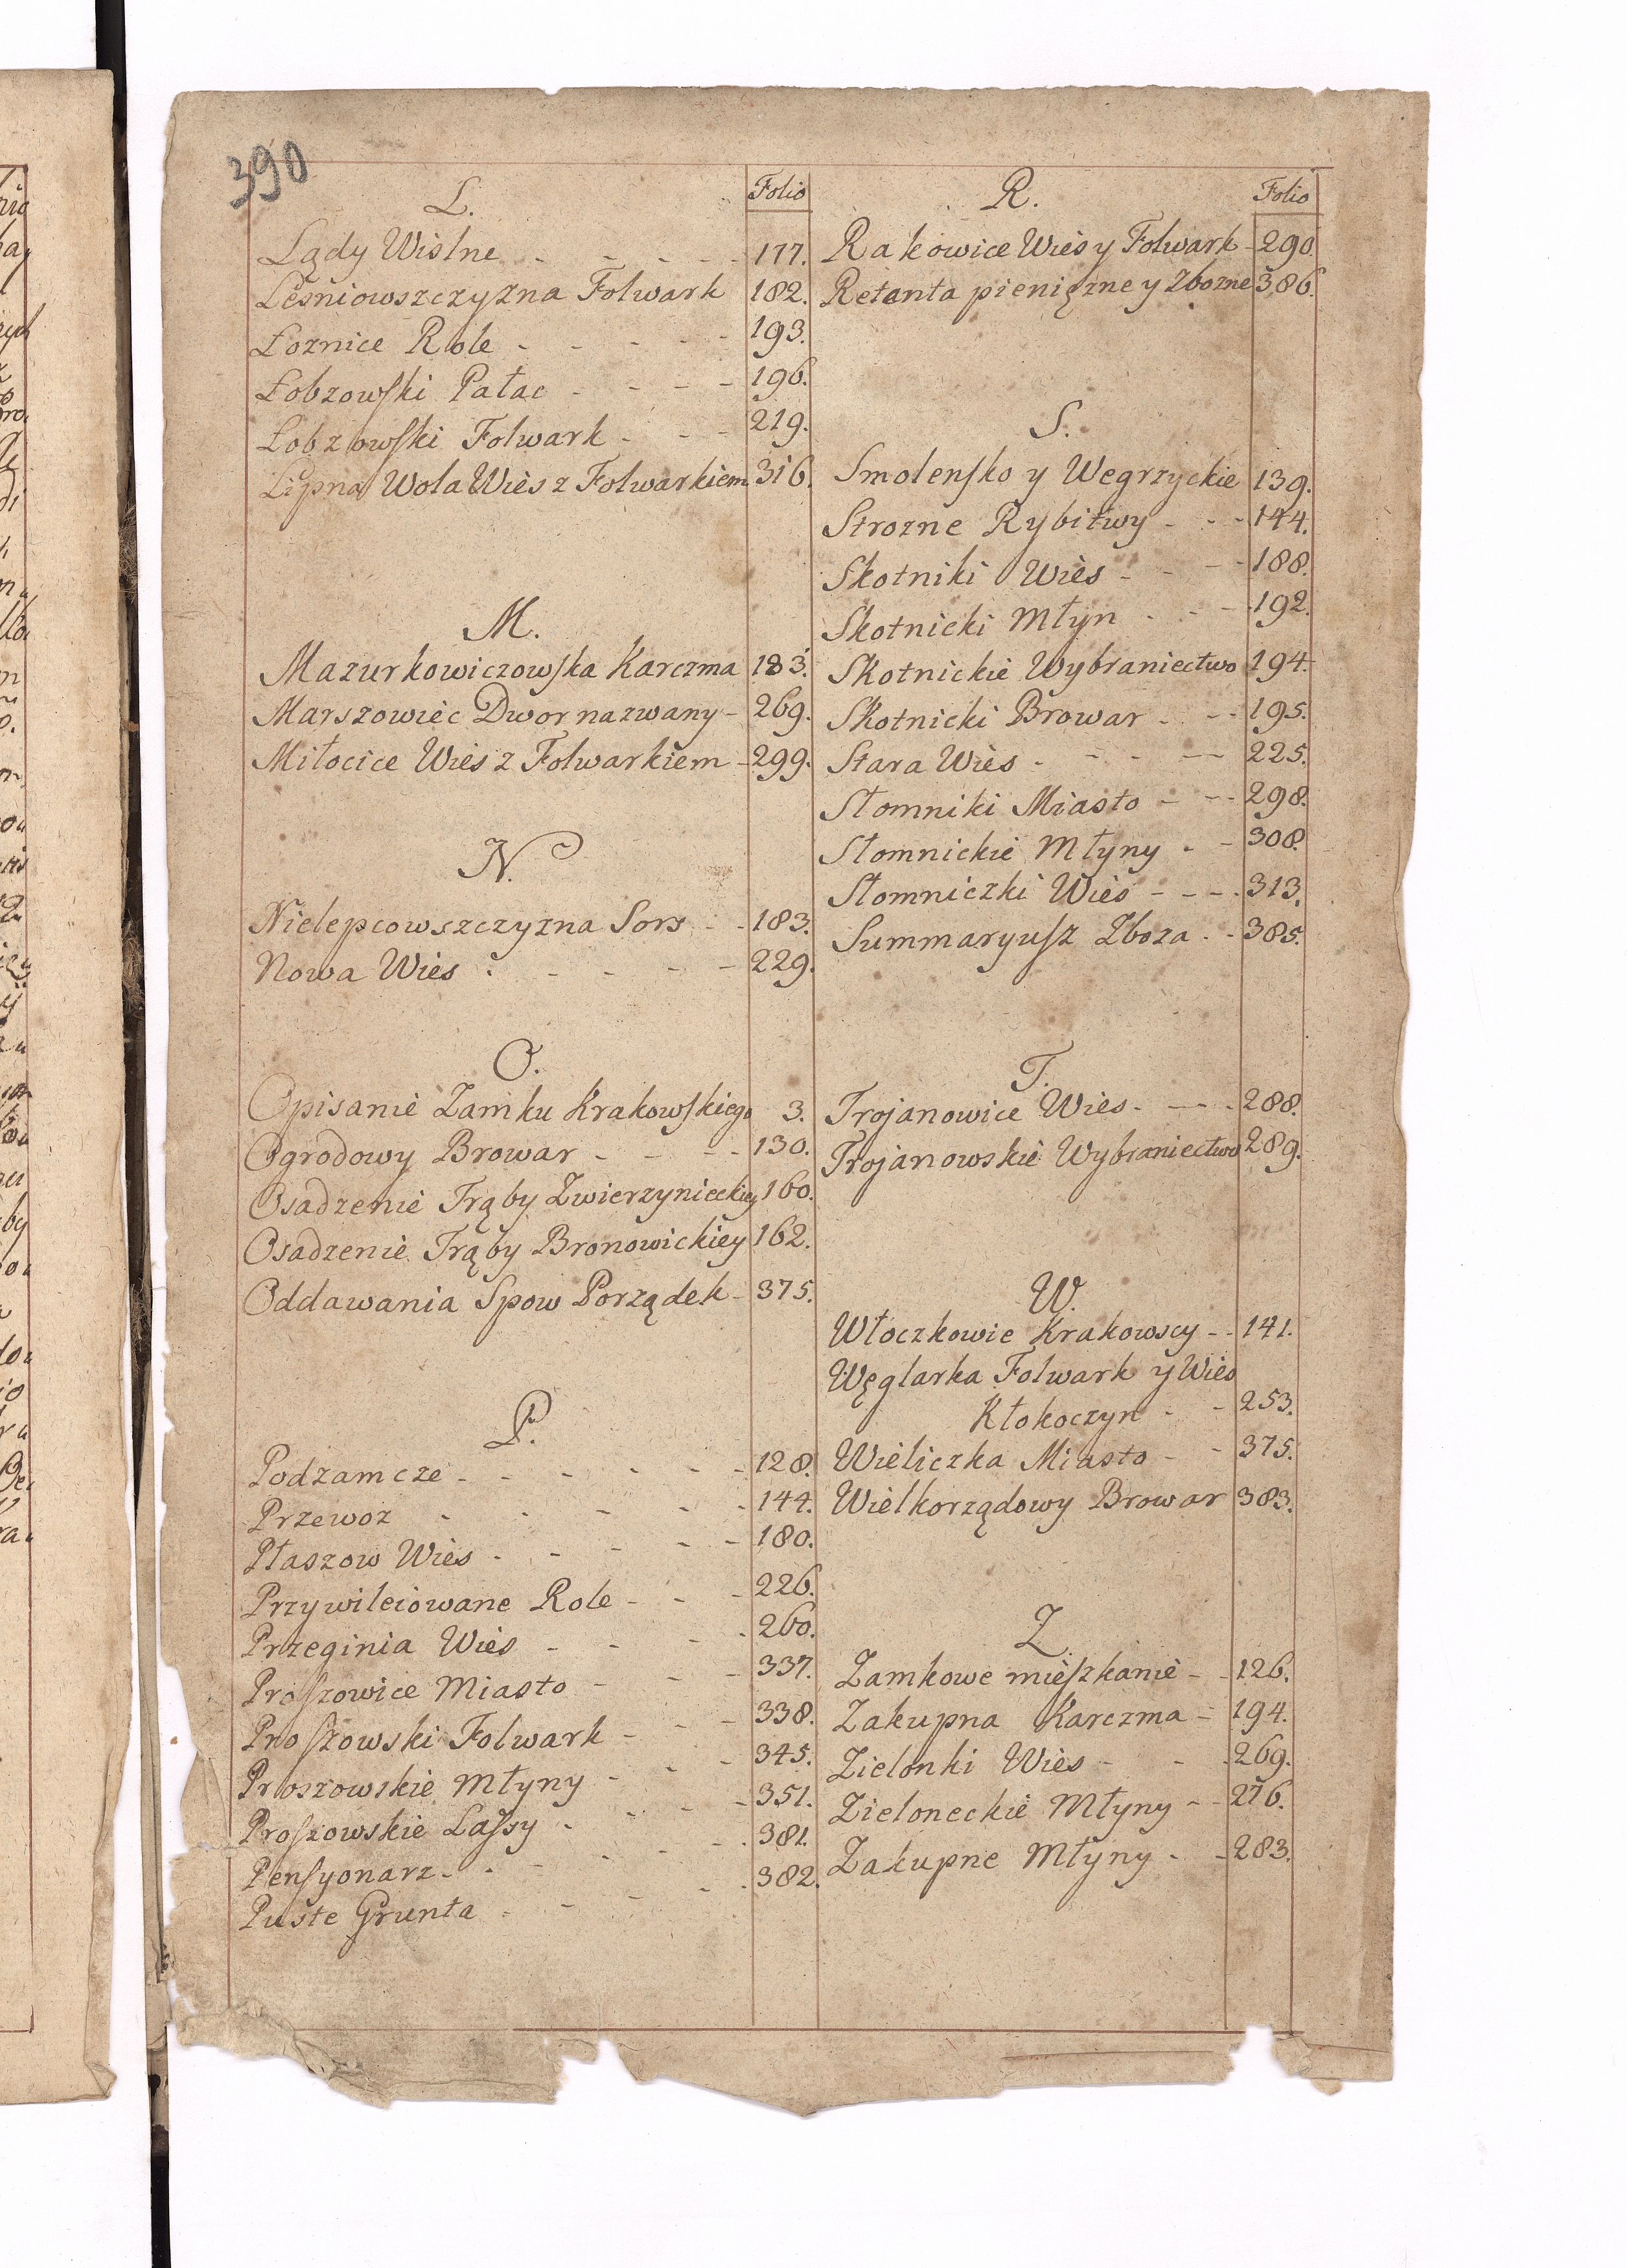 390
Folio
L.
Lądy Wislne - - - - - 177.
Leśniowszczyzna Folwark 182.
Łoznice Role - - - - - 193.
Łobzowski Pałac - - - - 196.
Łobzowski Folwark - - - 219.
Lipna Wola Wies z Folwarkiem 316.
M.
Mazurkowiczowska Karczma 183.
Marszowiec Dwor nazwany - 269.
Miłocice Wies z Folwarkiem - 299.
N.
Nielepcowszczyzna Sors - - 183.
Nowa Wies - - - - - 229.
O.
Opisanie Zamku Krakowskiego 3.
Ogrodowy Browar - - - - 130.
Osadzenie Trąby Zwierzynieckiey 160.
Osadzenie Trąby Bronowickiey 162.
Oddawania Spow Porządek - 375.
P.
Podzamcze - - - - - - 128.
Przewoz - - - - - 144.
Płaszow Wies - - - - - 180.
Przywileiowane Role - - - 226.
Przeginia Wies - - - - 260.
Proszowice Miasto - - - 337.
Proszowski Folwark - - - 338.
Proszowskie Młyny - - - 345.
Proszowskie Lassy - - - - 351.
Pensyonarz - - - - - - 381.
Puste Grunta - - - - - 382.
Folio
R.
Rakowice Wies y Folwark - 290.
Retenta pieniężne y Zbozne 386.
S.
Smolensko y Wegrzyckie 139.
Strozne Rybitwy - - - 144.
Skotniki Wies - - - - 188.
Skotnicki Młyn - - - 192.
Skotnickie Wybraniectwo 194.
Skotnicki Browar - - - 195.
Stara Wies - - - - - 225.
Słomniki Miasto - - - 298.
Słomnickie Młyny - - 308.
Słomniczki Wies - - - - 313.
Summaryusz Zboza - - 385.
T.
Trojanowice Wies - - - - 288.
Trojanowskie Wybraniectwo 289.
W.
Włoczkowie Krakowscy - - 141.
Węglarka Folwark y Wies
Kłokoczyn - - 253.
Wieliczka Miasto - - 375.
Wielkorządowy Browar 383.
Z
Zamkowe mieszkanie - - 126.
Zakupna Karczma - 194.
Zielonki Wies - - - 269.
Zieloneckie Młyny - - 276.
Zakupne Młyny - - 283.